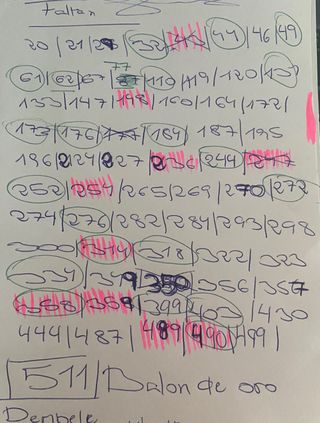 Faltan
20 / 21 / 28 / 32 / / 44 / 46 / 49
77
61 / 62 / 67 / / 110 / 119 / 120 / 13
133 / 147 / 148 / 160 / 164 / 172 /
173 / 176 / 177 / 184 / 187 / 195
196 / 224 / 227 / 236 / 244 / 247
252 / 254 / 265 / 269 / 270 / 272
274 / 276 / 282 / 284 / 293 / 298
300 / 314 / 318 / 322 / 323
331 / 350 / 356 / 357
358 / 359 / 399 / 403 / 430
444 / 487 / 489 / 490 / 499 /
511 / Balon de oro
Dembele